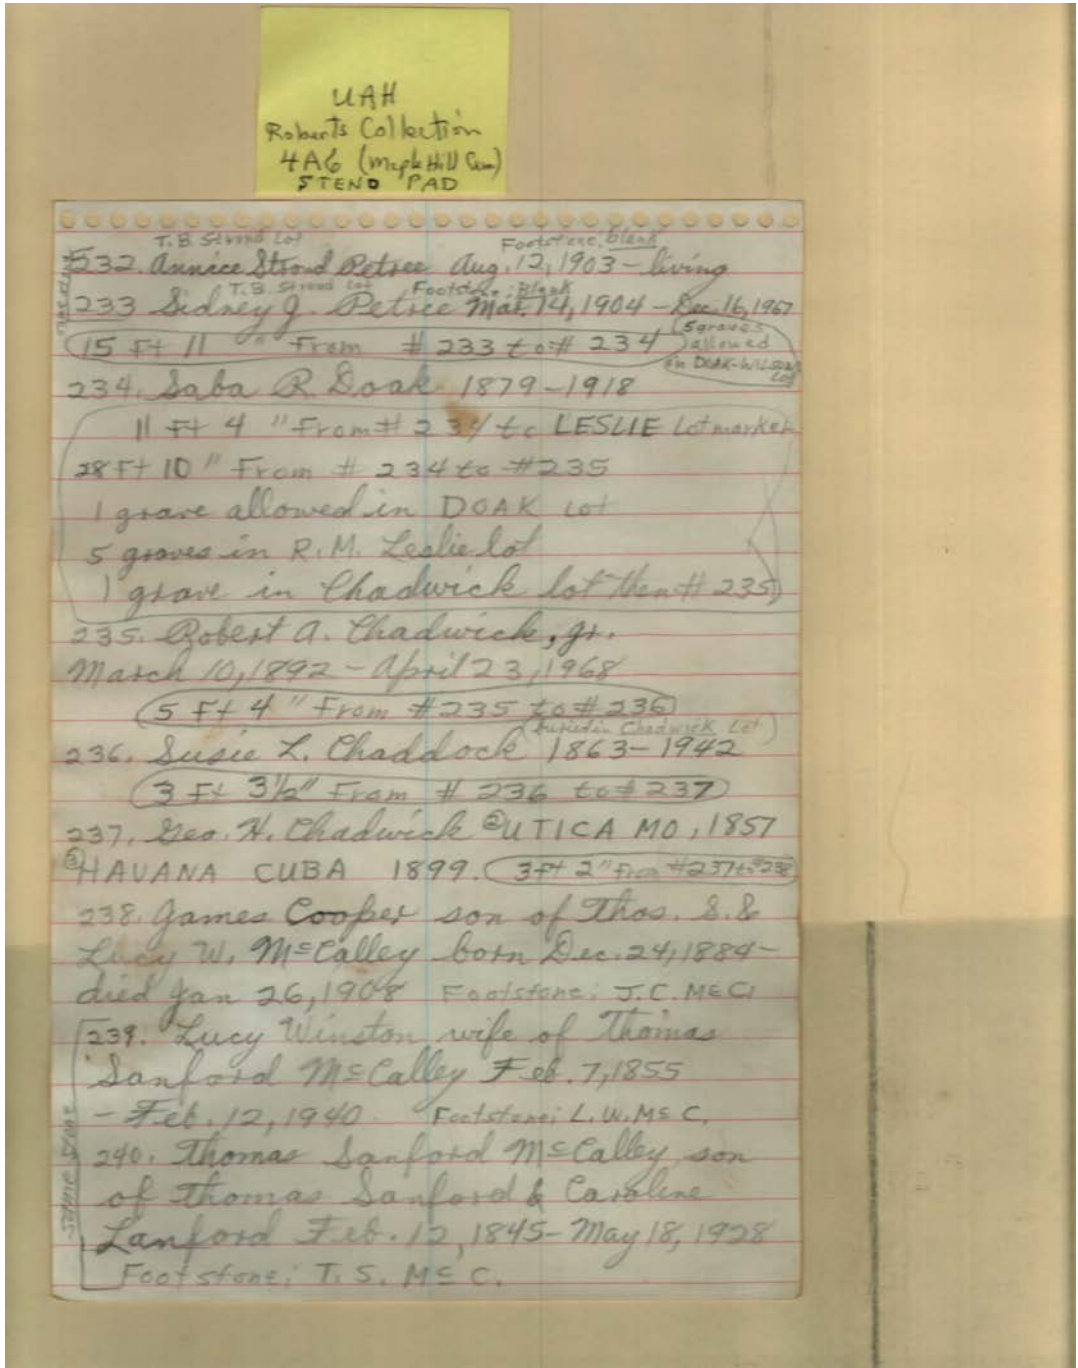 UAH
Roberts Collection
4A6 (Maple Hill Cem)
STENO PAD
T.B. Stroud Lot Footstone: blank
232. Annice Stroud Petree Aug. 12, 1903 - living
T.B. Stroud Lot Footstone: Blank
233 Sidney J. Petree Mar. 14, 1904 - Dec. 16, 1967
same stone
15 Ft 11 " From # 233 to # 234
5 graves
allowed
in DOAK-WILSON
Lot
234. Saba R. Doak 1879-1918
11 Ft 4 " From # 234 to LESLIE Lot marker
28 Ft 10 " From # 234 to #235
1 grave allowed in DOAK Lot
5 graves in R.M. Leslie lot
1 grave in Chadwick lot then # 235
235. Robert A. Chadwick, Jr.
March 10, 1892 - April 23, 1968
5 Ft 4 " From #235 to #236
(buried in Chadwick Lot)
236. Susie L. Chaddock 1863-1942
3 Ft 3½" From # 236 to #237
237. Geo. H. Chadwick ② UTICA MO, 1857
③ HAVANA CUBA 1899. 3 Ft 2" from #237 to #238
238. James Cooper son of Thos. S. &
Lucy W. McCalley born Dec. 24, 1884 -
died Jan 26, 1908 Footstone: J.C. McC.
239. Lucy Winston wife of Thomas
Sanford McCalley Feb. 7, 1855
- Feb. 12, 1940 Footstone: L.W. Mc C.
240. Thomas Sanford McCalley, son
of Thomas Sanford & Caroline
Lanford Feb. 12, 1845 - May 18, 1928
Footstone: T. S. Mc C.
same stone